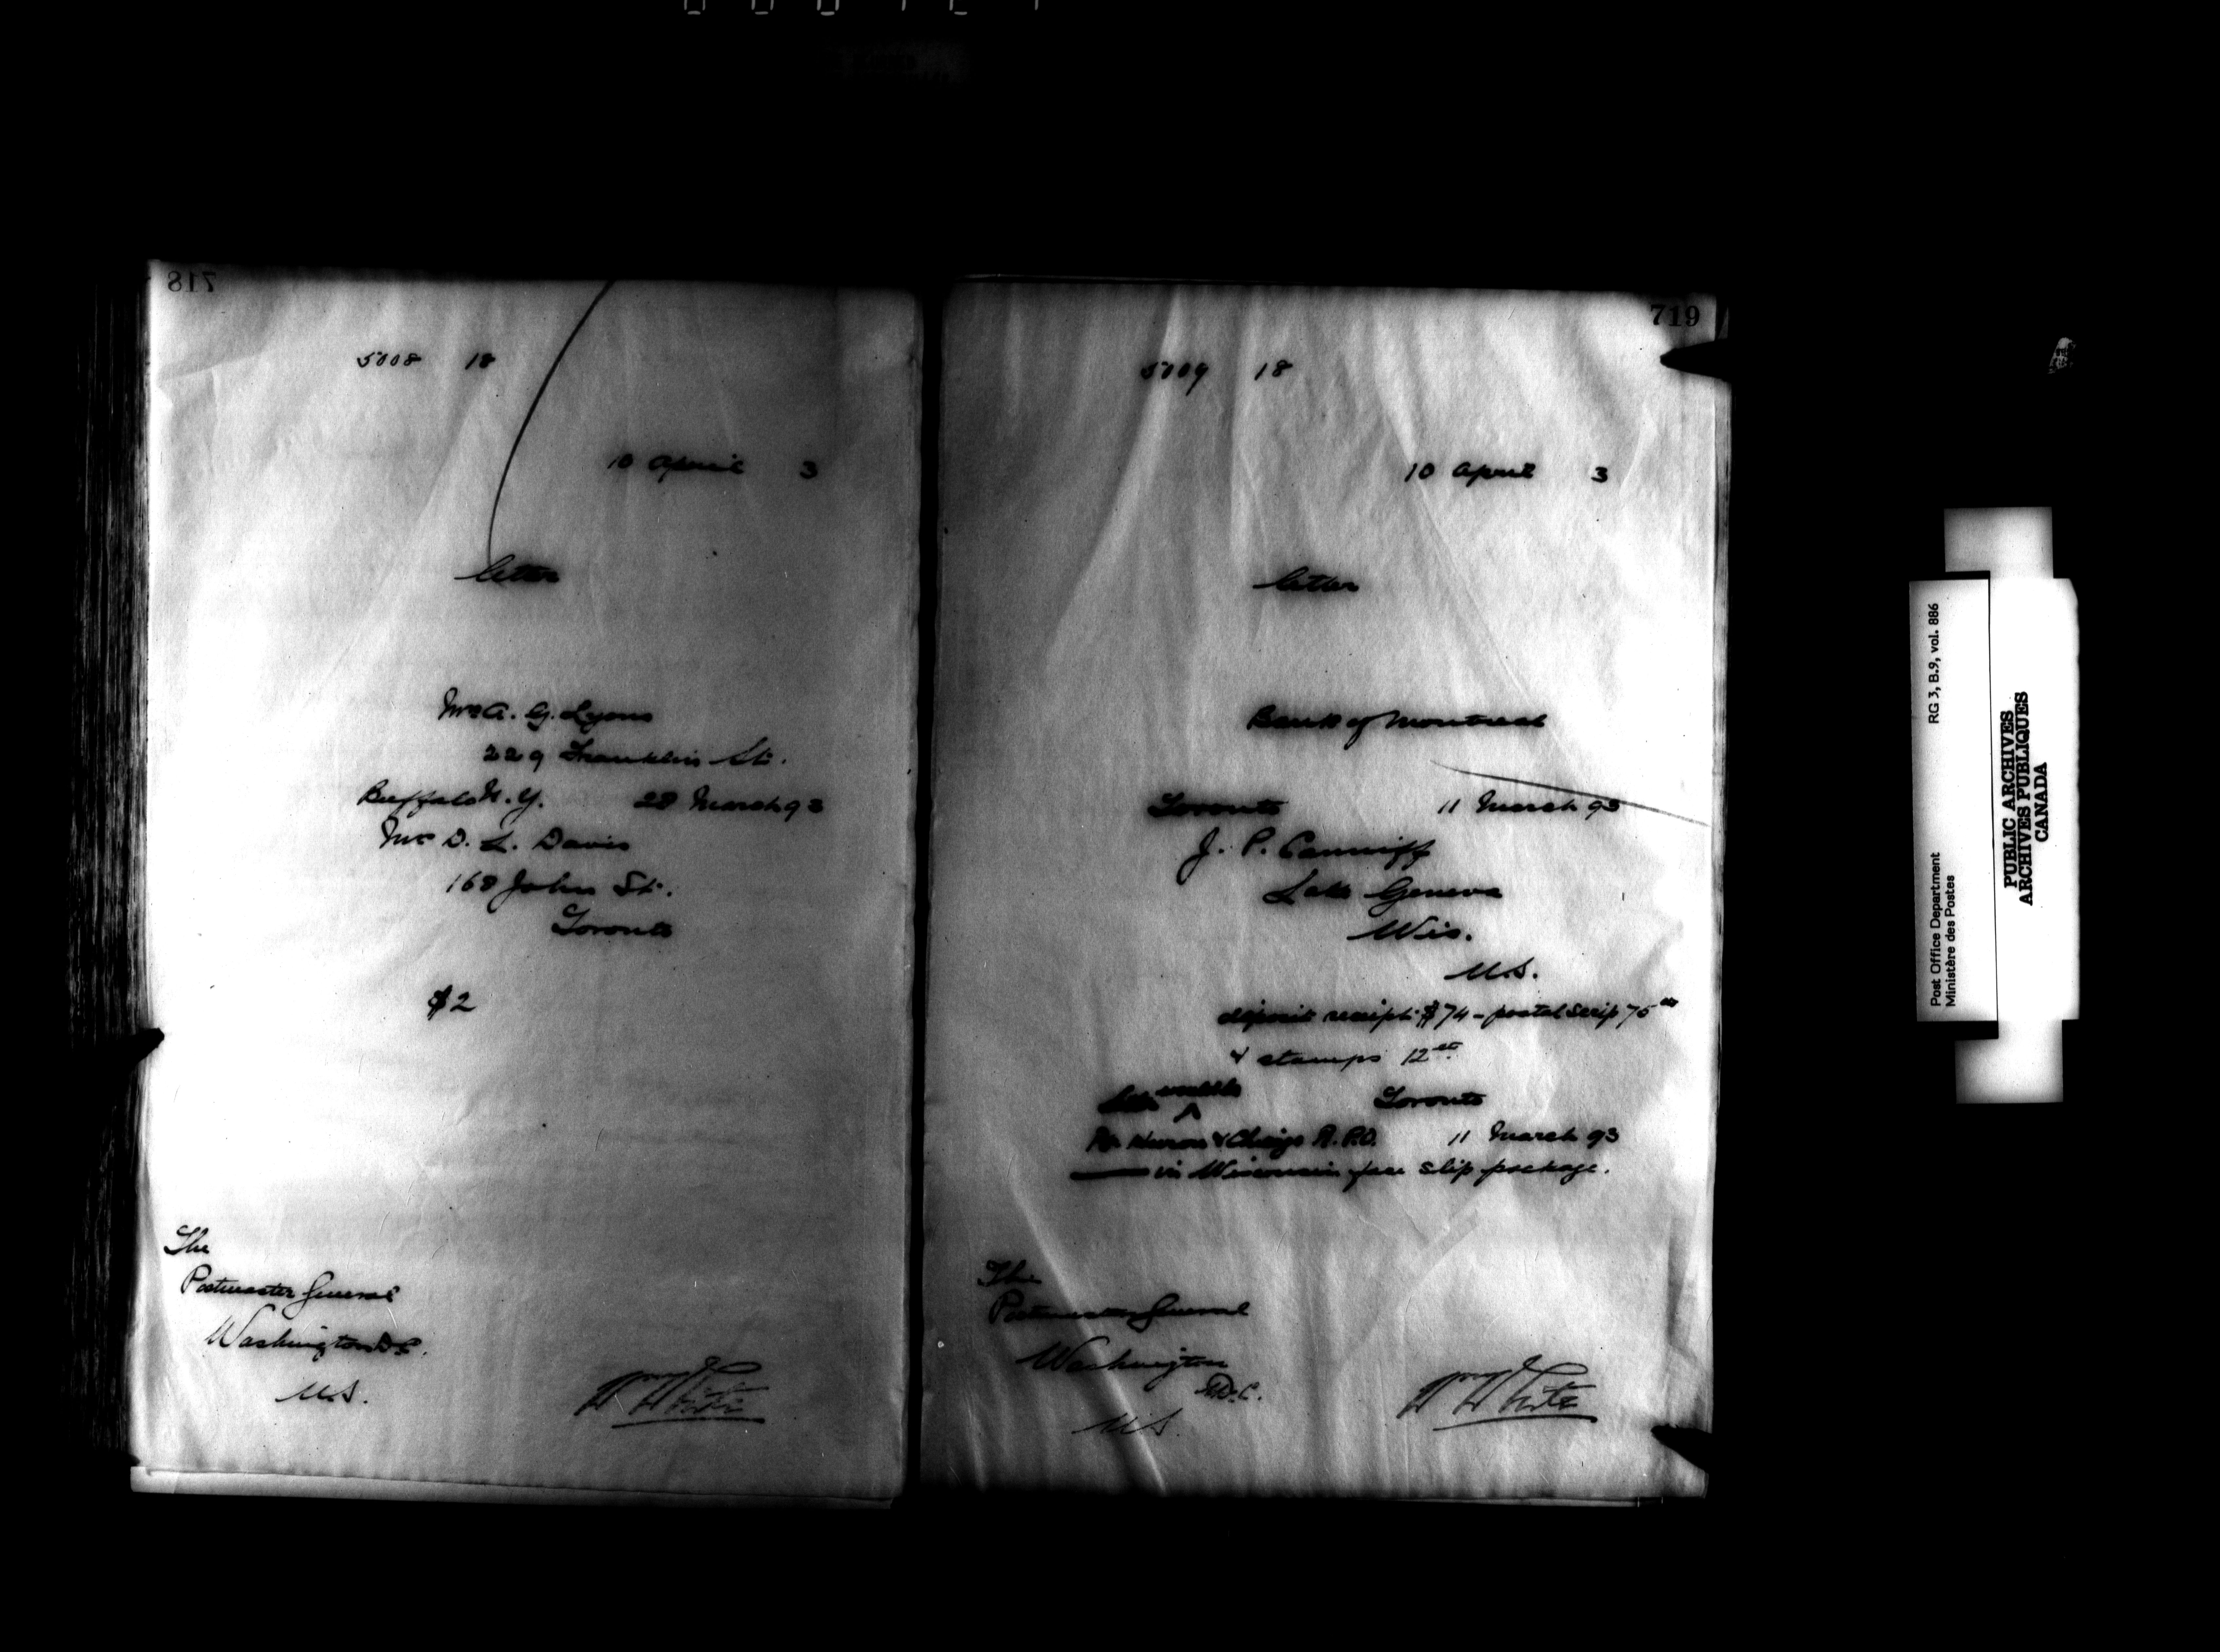 718
5008 18
10 April 3
letter
Mrs A. G. Lyons
229 Franklin St.
Buffalo N.Y. 28 March 93
Mr D. L. Davis
168 John St.
Toronto
$2
The
Postmaster General
Washington D.C.
U.S.
Wm White
719
5009 18
10 April 3
letter
Bank of Montreal
Toronto 11 March 93
J. P. Canniff
Lake Geneva
Wis.
U.S.
deposit receipt $74 - postal scrip 75 cts
& stamps 12 ct
Toronto
Pt Huron & Chicago R.P.O. 11 March 93
in Wisconsin face slip package.
The
Postmaster General
Washington
D.C.
U.S.
Wm White
Post Office Department
Ministère des Postes
RG 3, B.9, vol. 886
PUBLIC ARCHIVES
ARCHIVES PUBLIQUES
CANADA